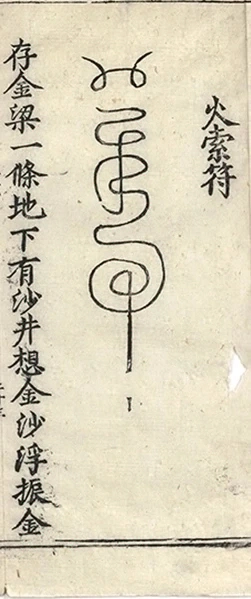 火索符
存金梁一條地下有沙井想金沙浮振金